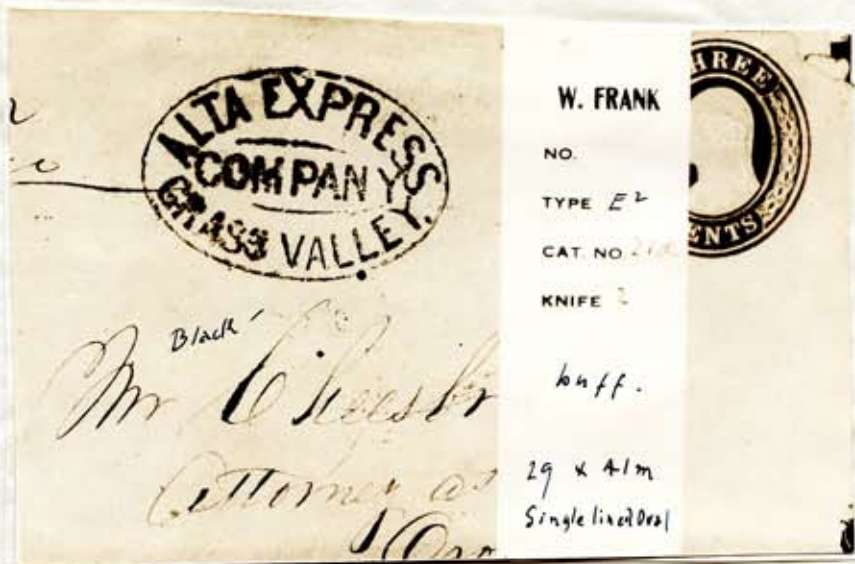 ALTA EXPRESS
COMPANY
GRASS VALLEY.
Black
Mr
Attorney at
W. FRANK
NO.
TYPE E2
CAT. NO.
KNIFE 2
buff.
29 x 41m
Single lined Oval
THREE
CENTS